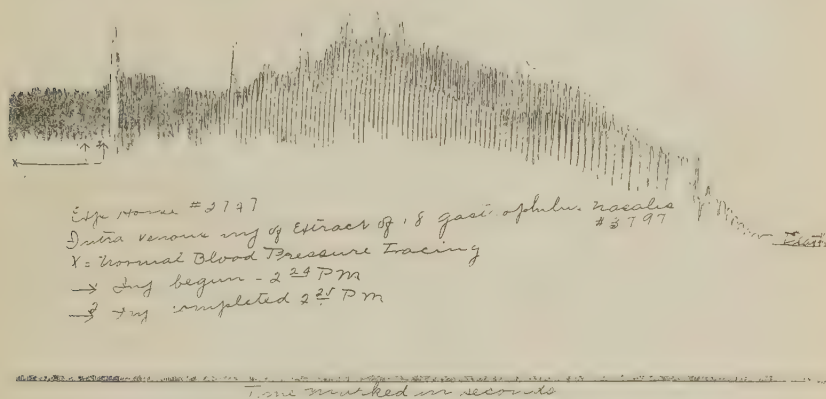 X
Exp Horse #2797
Intra venous inj of Extract of 18 gastrophilus nasalis
#3797
X = Normal Blood Pressure Tracing
→ Inj begun - 2 24 PM
→ 2 Inj completed 2 25 PM
Time marked in seconds